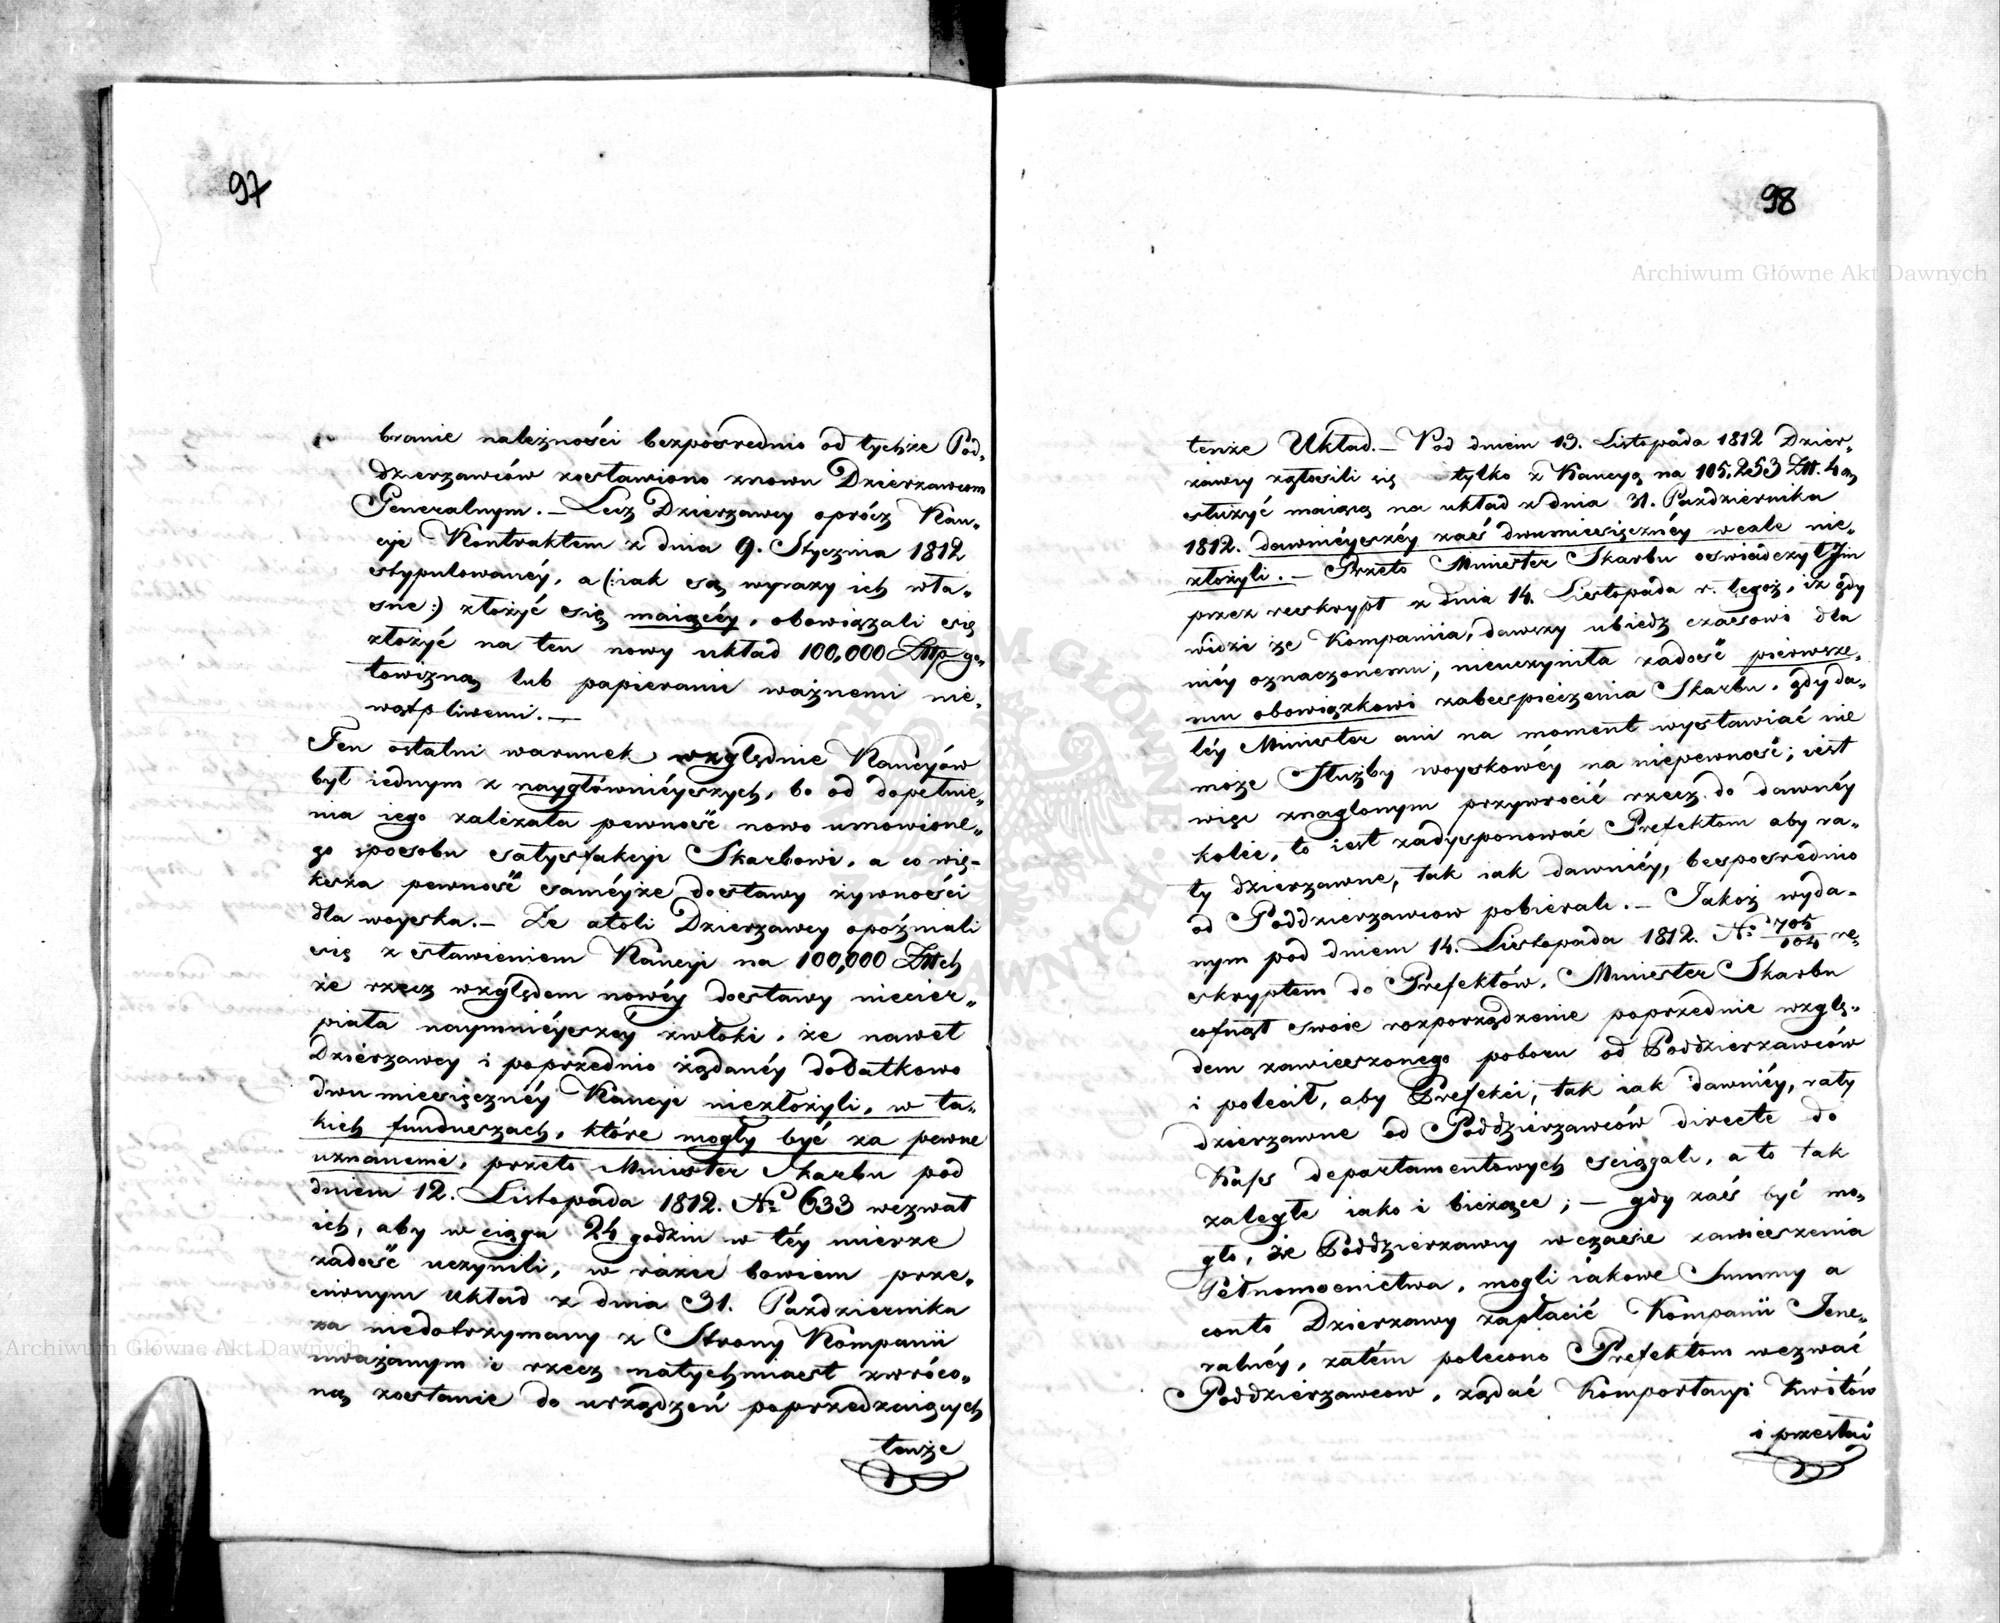 97
branie należności bezpośrednio od tychże Pod„
dzierzawców zostawiono znowu Dzierzawcom
Generalnym. — Lecz Dzierzawcy oprócz Kau„
cyi Kontraktem z dnia 9. Stycznia 1812
stypulowanéy, a (:iak są wyrazy ich wła„
sne:) złożyć się maiącéy, obowiązali się
złożyć na ten nowy układ 100,000 Złłp go„
towizną lub papierami ważnemi nie„
wątpliwemi. —
Ten ostatni warunek względnie Kaucyów
był iednym z naygłównieyszych, bo od dopełnie„
nia iego zależała pewność nowo umówione„
go sposobu satysfakcyi Skarbowi, a co wię„
ksza pewność saméyże dostawy żywności
dla woyska. — Że atoli Dzierzawcy opóźniali
się z stawieniem Kaucyi na 100,000 Złłch
że rzecz względem nowéy dostawy niecier„
piała naymnieyszéy zwłoki, że nawet
Dzierzawcy i poprzednio żądanéy dodatkowo
dwumiesięcznéy Kaucyi niezłożyli, w ta„
kich funduszach, które mogły być za pewne
uznanemi, przeto Minister Skarbu pod
dniem 12. Listopada 1812. No 633 wezwał
ich, aby w ciągu 24 godzin w téy mierze
zadość uczynili, w razie bowiem prze„
ciwnym układ z dnia 31. Października
za niedotrzymany z Strony Kompanii
uważanym i rzecz natychmiast zwróco„
ną zostanie do urządzeń poprzedzaiących
tenże
98
tenże Układ. — Pod dniem 13. Listopada 1812 Dzier„
zawcy zgłosili się tylko z Kaucyą na 105,253 Złł. 4
służyć maiącą na układ z dnia 31. Października
1812. dawnieyszéy zaś dwumiesięcznéy wcale nie„
złożyli. — Przeto Minister Skarbu oświadczył Im
przez reskrypt z dnia 14. Listopada r. tegoż, iż gdy
widzi że Kompania, dawszy ubiedz czasowi dla
niéy oznaczonemu, nieuczyniła zadość pierwsze„
mu obowiązkowi zabespieczenia Skarbu, gdy da„
léy Minister ani na moment wystawiać nie
może Służby woyskowéy na niepewność; iest
więc znaglonym przywrócić rzecz do dawnéy
kolei, to iest zadysponować Prefektom aby ra„
ty dzierzawne, tak iak dawniéy, bespośrednio
od Poddzierzawcow pobierali. — Jakoż wyda„
nym pod dniem 14. Listopada 1812. No 705/104 re„
skryptem do Prefektów, Minister Skarbu
cofnął swoie rozporządzenie poprzednie wzglę„
dem zawieszonego poboru od Poddzierzawców
i polecił, aby Prefekci, tak iak dawniéy, raty
dzierzawne od Poddzierzawców directe do
Kass departamentowych sciągali, a to tak
zaległe iako i bieżące; — gdy zaś być mo„
gło, że Poddzierzawcy w czasie zawieszenia
Pełnomocnictwa, mogli iakowe Summy a
conto Dzierzawy zapłacić Kompanii Jene„
ralnéy, zatém polecono Prefektom wezwać
Poddzierzawcow, żądać Komportacyi Kwitów
i przesłać
Archiwum Główne Akt Dawnych
Archiwum Główne Akt Dawnych